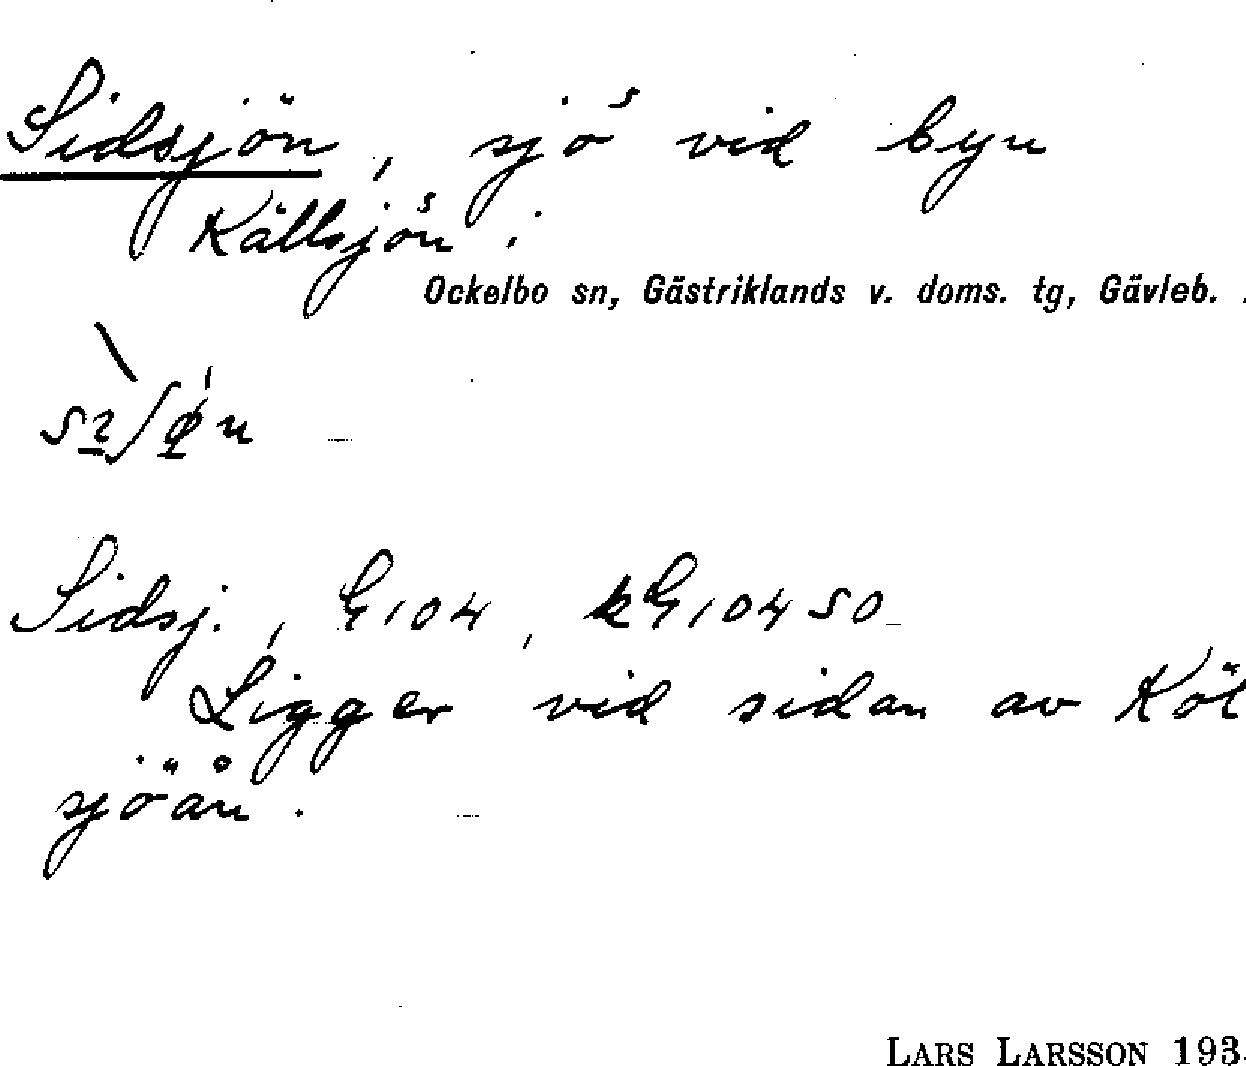 Sidsjön, sjö vid byn
Källsjön i
Ockelbo sn, Gästriklands v. doms. tg, Gävleb.
Sidsj., G104, kG10450
Ligger vid sidan av Köl
sjöån.
LARS LARSSON 193